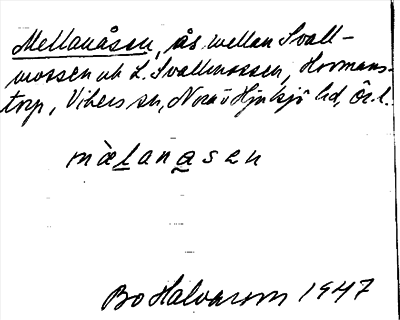 Mellanåsen, ås mellan Svall-
mossen och L. Svallmossen, Hormans-
torp, Vikers sn, Nora o Hjulsjö hd, Ör. l.
mælanasen
Bo Halvarson 1947